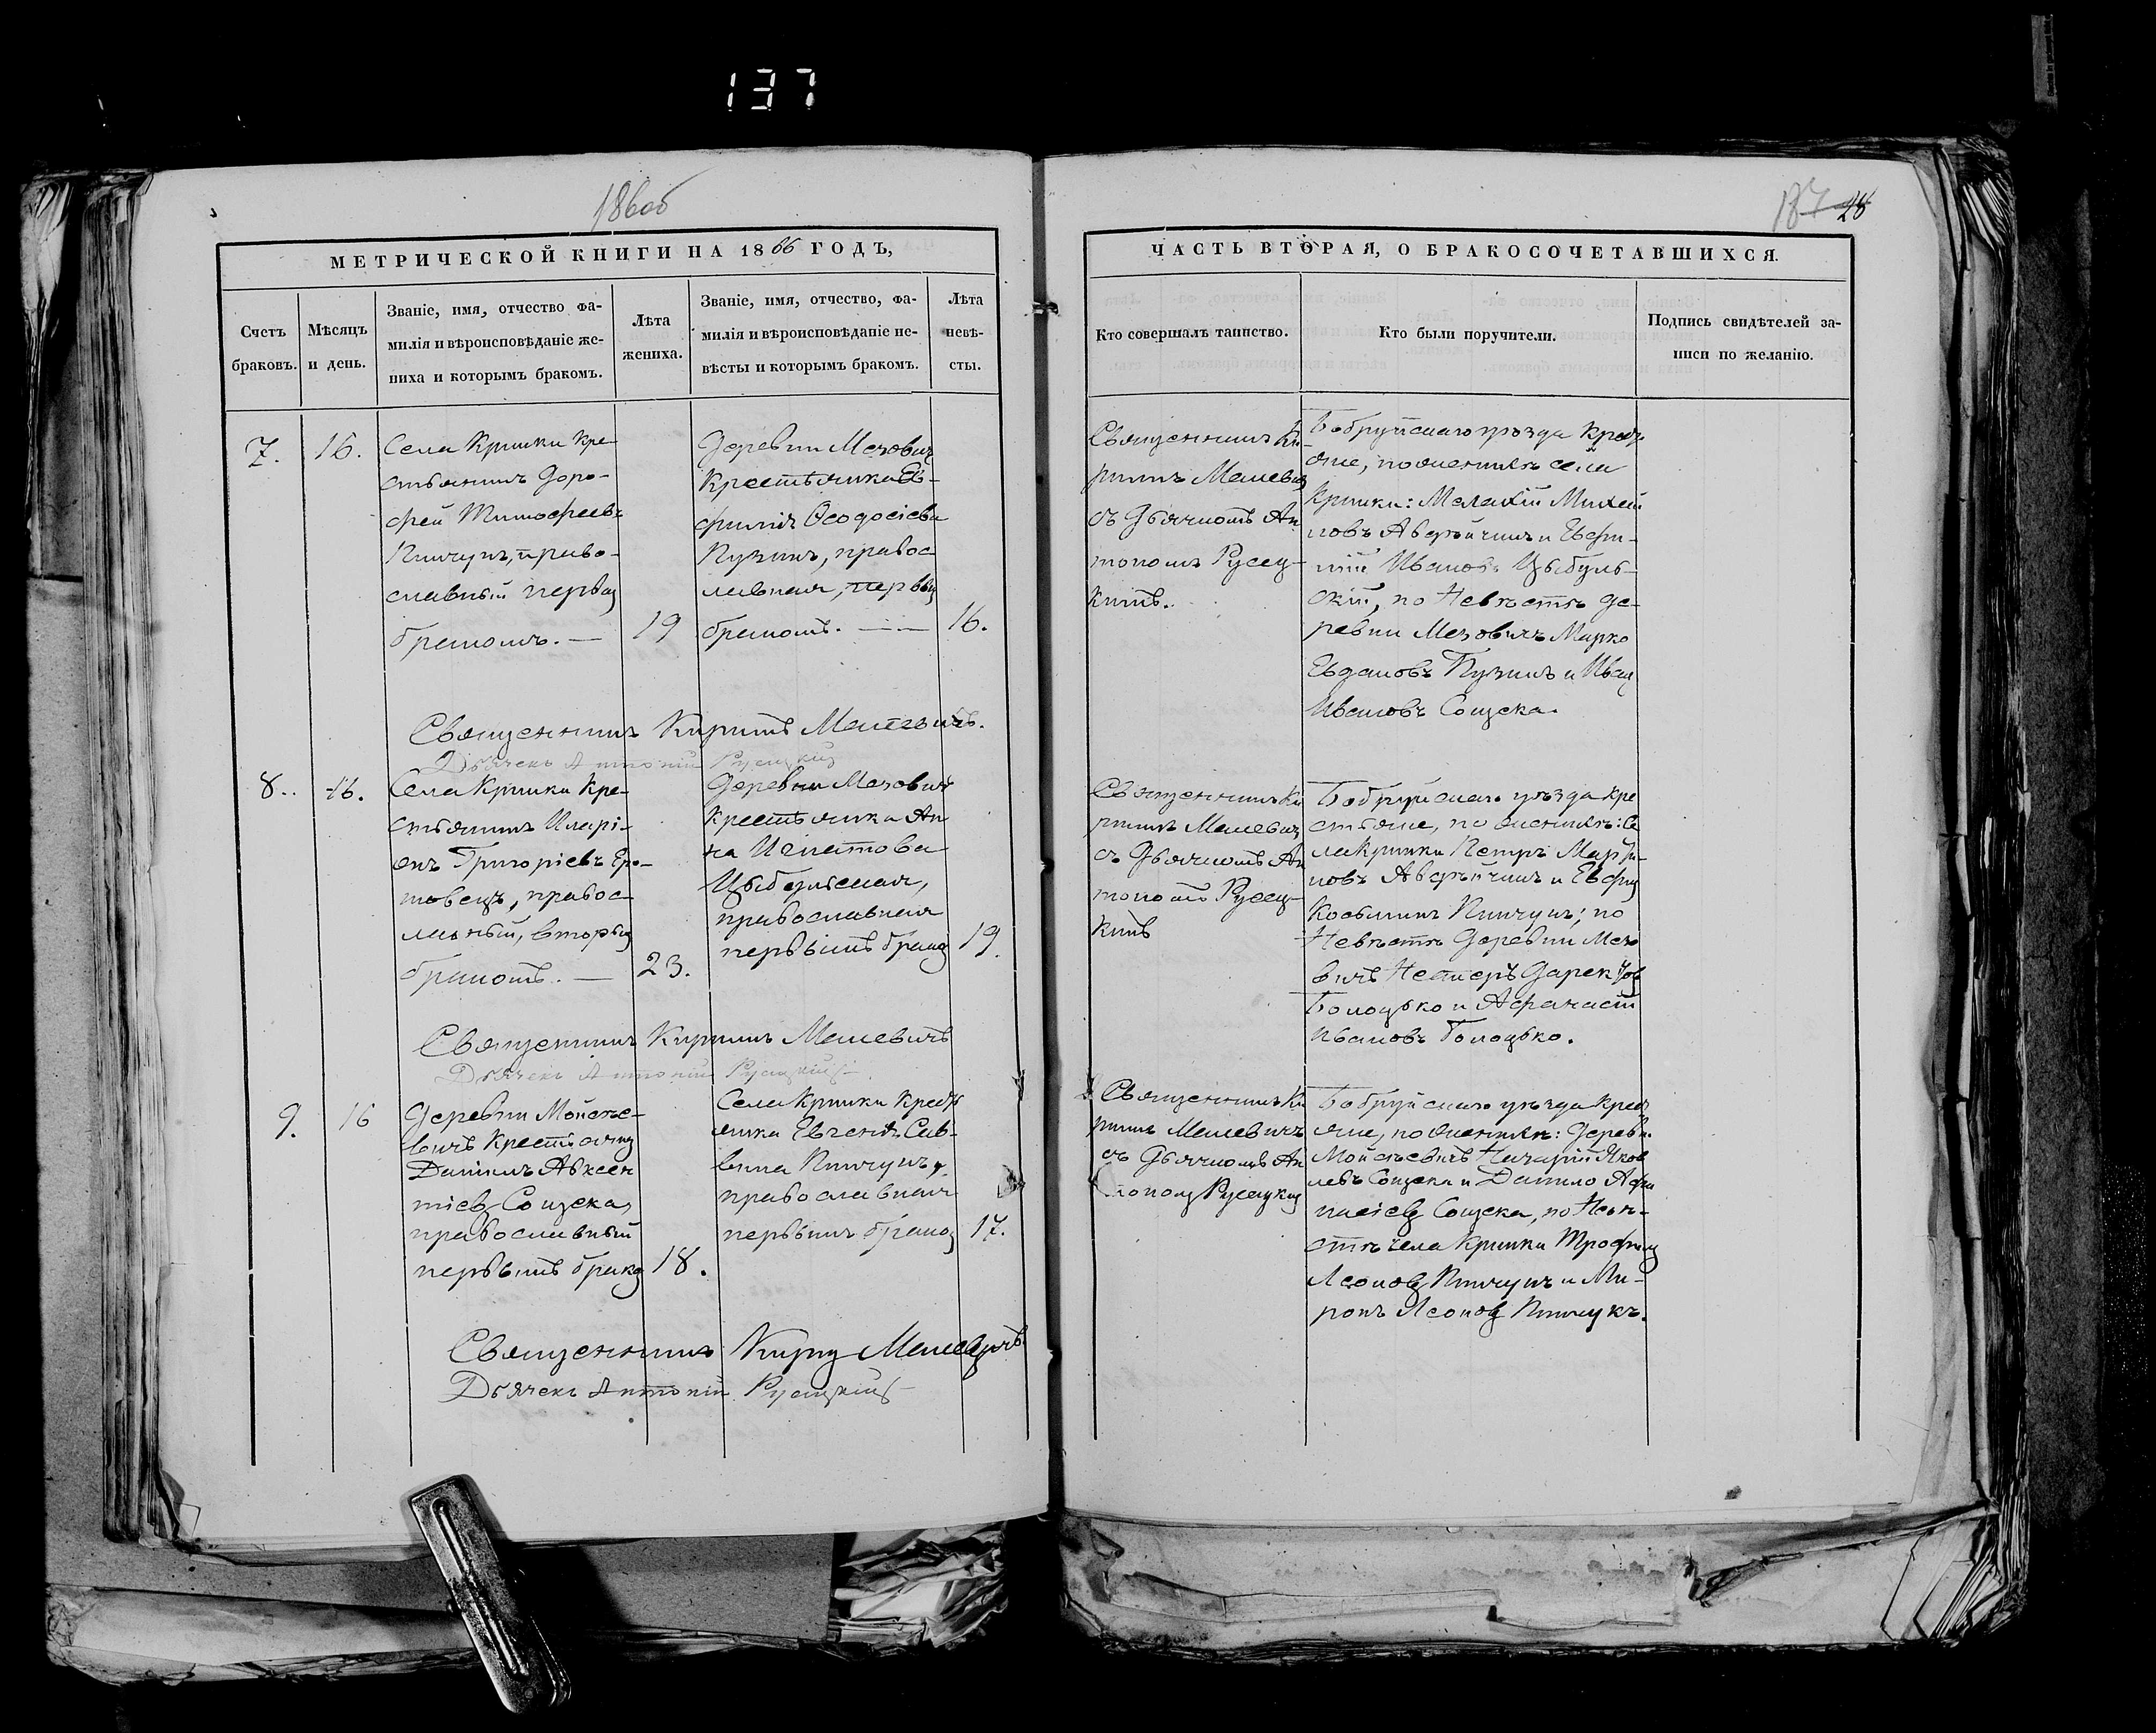 137
186об
МЕТРИЧЕСКОЙ КНИГИ НА 1866 ГОДЪ,
Счетъ браковъ.
Мѣсяцъ и день.
Званіе, имя, отчество фа-
милія и вѣроисповѣданіе же-
ниха и которымъ бракомъ.
Лѣта
жениха.
Званіе, имя, отчество, фа-
милія и вѣроисповѣданіе не-
вѣсты и которымъ бракомъ.
Лѣта
невѣ-
сты.
7.
16.
Села Кринки Кре-
стьянинъ Доро-
фей Тимофеевъ
Пинчукъ, право-
славный первым
бракомъ. —
19
Деревни Мезовичъ
Крестьянка Ев-
фимія Ѳеодосіева
Пузинъ, правос
лавная, первым
бракомъ. — —
16.
Священникъ Кирилъ Малевичъ.
Дьячекъ Антоній Русецкій
8..
16.
Села Кринки Кре-
стьянинъ Иларі-
онъ Григоріевъ Еро-
товецъ, правос-
лавный, вторым
бракомъ. —
23.
Деревни Мезовичъ
Крестьянка Ан
на Игнатова
Цыбульская,
православная
первымъ браком
19.
Священникъ Кирилъ Малевичъ
Дьячекъ Антоній Русецкій
9.
16
Деревни Мойсѣе-
вичъ Крестьянин
Даніилъ Авксен
тіев Сощека,
православный
первымъ браком
18.
Села Кринки Крестья
янка Евгенія Сав-
вина Пинчукъ,
православная
первымъ браком
17.
Священникъ Кирил Малевичъ
Дьячекъ Антоній Русецкій
187 28
ЧАСТЬ ВТОРАЯ, О БРАКОСОЧЕТАВШИХСЯ.
Кто совершалъ таинство.
Кто были поручители.
Подпись свидѣтелей за-
писи по желанію.
Священникъ Ки-
рилъ Малевич
съ Дьячкомъ Ан
тономъ Русец-
кимъ.
Бобруйскаго уѣзда Кресть
яне, по женихѣ села
Кринки: Малахій Михай
ловъ Авдѣйчикъ и Евфи-
мій Ивановъ Цыбуль-
скій, по Невѣстѣ де-
ревни Мезовичъ Марко
Евдаковъ Пузинъ и Иван
Ивановъ Сощека.
Священникъ Ки
рилъ Малевич
съ Дьячкомъ Ан
тономъ Русец-
кимъ
Бобруйскаго уѣзда Кре
стьяне, по женихѣ: Се
ла Кринки Петръ Марти-
новъ Авдѣйчикъ и Евфим
Косьминъ Пинчукъ; по
Невѣстѣ Деревни Мезо
вичъ
Болоцько и Афанасій
Ивановъ Болоцько.
Священникъ Ки
рилъ Малевичъ
съ Дьячкомъ Ан
тоном Русецким
Бобруйскаго уѣзда Кресть
яне, по женихѣ: Деревн.
Мойсѣевичъ Назарій Яков
левъ Сощека и Данило Афа
насіев Сощека, по Невѣ-
стѣ села Кринки Трофим
Леонов Пинчукъ и Ми-
ронъ Леонов Пинчукъ.